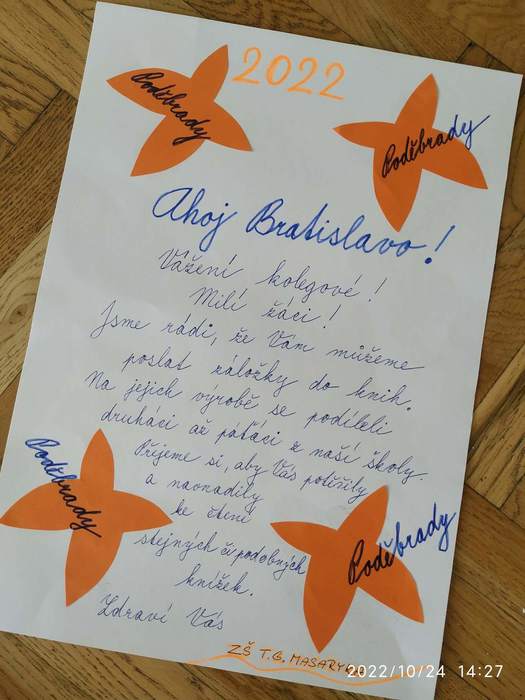 2022
Poděbrady
Poděbrady
Ahoj Bratislavo!
Vážení kolegové!
Milí žáci!
Jsme rádi, že Vám můžeme
poslat záložky do knih.
Na jejich výrobě se podíleli
druháci až páťáci z naší školy.
Přejeme si, aby Vás potěšily
a navnadily
ke čtení
stejných či podobných
knížek.
Zdraví Vás
Poděbrady
Poděbrady
ZŠ T.G. MASARYKA
2022/10/24 14:27